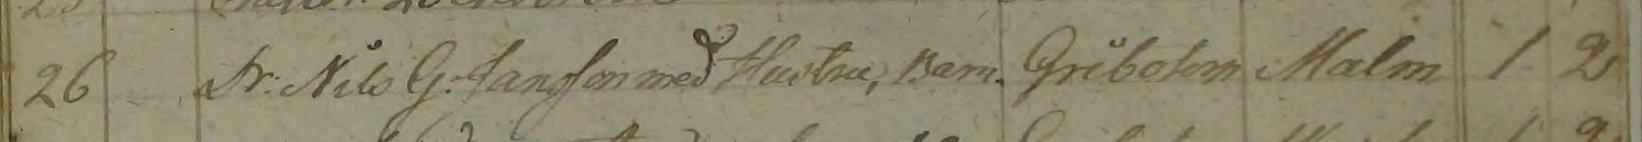 26 Dr. Nils G. Jansson med Hustru, Barn. Gribotorp Malm 1 2